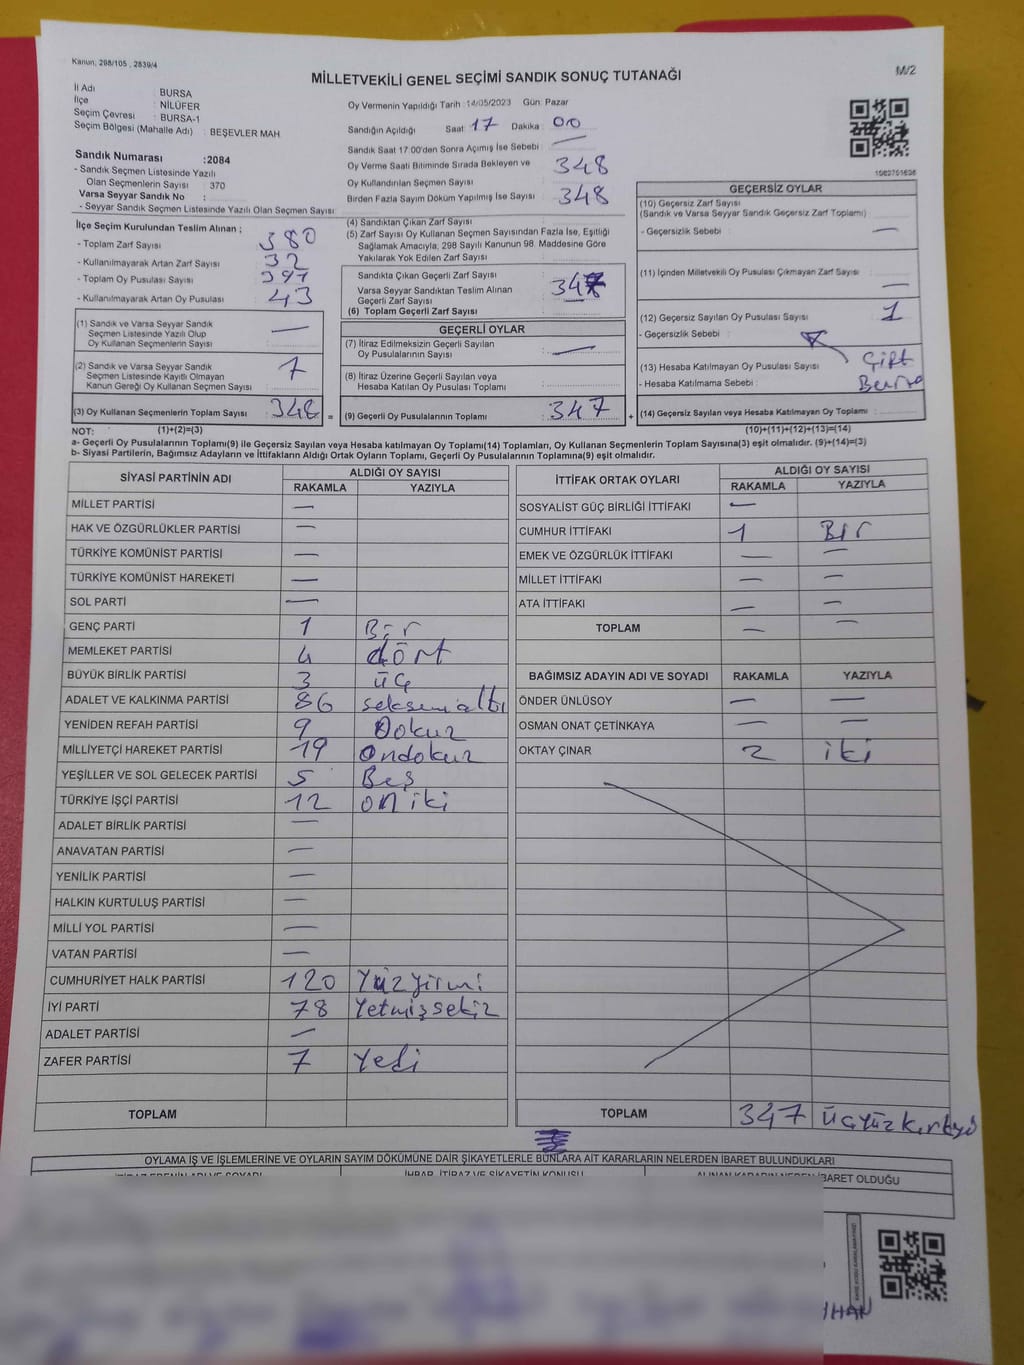 Kanun, 298/105 , 2839/4
MİLLETVEKİLİ GENEL SEÇİMİ SANDIK SONUÇ TUTANAĞI
M/2
İl Adı : BURSA
İlçe : NİLÜFER
Seçim Çevresi : BURSA-1
Seçim Bölgesi (Mahalle Adı) : BEŞEVLER MAH
Sandık Numarası :2084
- Sandık Seçmen Listesinde Yazılı
Olan Seçmenlerin Sayısı : 370
Varsa Seyyar Sandık No :
- Seyyar Sandık Seçmen Listesinde Yazılı Olan Seçmen Sayısı :
Oy Vermenin Yapıldığı Tarih :14/05/2023 Gün: Pazar
Sandığın Açıldığı Saat : 17 Dakika : 00
Sandık Saat 17:00'den Sonra Açılmış İse Sebebi : —
Oy Verme Saati Bitiminde Sırada Bekleyen ve
Oy Kullandırılan Seçmen Sayısı : 348
Birden Fazla Sayım Döküm Yapılmış İse Sayısı : 348
1982701636
İlçe Seçim Kurulundan Teslim Alınan ;
- Toplam Zarf Sayısı : 380
- Kullanılmayarak Artan Zarf Sayısı : 32
- Toplam Oy Pusulası Sayısı : 391
- Kullanılmayarak Artan Oy Pusulası : 43
(1) Sandık ve Varsa Seyyar Sandık
Seçmen Listesinde Yazılı Olup
Oy Kullanan Seçmenlerin Sayısı : —
(2) Sandık ve Varsa Seyyar Sandık
Seçmen Listesinde Kayıtlı Olmayan
Kanun Gereği Oy Kullanan Seçmen Sayısı : 7
(3) Oy Kullanan Seçmenlerin Toplam Sayısı : 348 =
(4) Sandıktan Çıkan Zarf Sayısı :
(5) Zarf Sayısı Oy Kullanan Seçmen Sayısından Fazla İse, Eşitliği
Sağlamak Amacıyla, 298 Sayılı Kanunun 98. Maddesine Göre
Yakılarak Yok Edilen Zarf Sayısı :
Sandıkta Çıkan Geçerli Zarf Sayısı
Varsa Seyyar Sandıktan Teslim Alınan
Geçerli Zarf Sayısı
(6) Toplam Geçerli Zarf Sayısı :
GEÇERLİ OYLAR
(7) İtiraz Edilmeksizin Geçerli Sayılan
Oy Pusulalarının Sayısı : —
(8) İtiraz Üzerine Geçerli Sayılan veya
Hesaba Katılan Oy Pusulası Toplamı :
(9) Geçerli Oy Pusulalarının Toplamı : 347 +
GEÇERSİZ OYLAR
(10) Geçersiz Zarf Sayısı
(Sandık ve Varsa Seyyar Sandık Geçersiz Zarf Toplamı) :
- Geçersizlik Sebebi : —
(11) İçinden Milletvekili Oy Pusulası Çıkmayan Zarf Sayısı : —
(12) Geçersiz Sayılan Oy Pusulası Sayısı : 1
- Geçersizlik Sebebi :
(13) Hesaba Katılmayan Oy Pusulası Sayısı : Çift
- Hesaba Katılmama Sebebi :
(14) Geçersiz Sayılan veya Hesaba Katılmayan Oy Toplamı :
NOT: (1)+(2)=(3) (10)+(11)+(12)+(13)=(14)
a- Geçerli Oy Pusulalarının Toplamı(9) ile Geçersiz Sayılan veya Hesaba katılmayan Oy Toplamı(14) Toplamları, Oy Kullanan Seçmenlerin Toplam Sayısına(3) eşit olmalıdır. (9)+(14)=(3)
b- Siyasi Partilerin, Bağımsız Adayların ve İttifakların Aldığı Ortak Oyların Toplamı, Geçerli Oy Pusulalarının Toplamına(9) eşit olmalıdır.
SİYASİ PARTİNİN ADI ALDIĞI OY SAYISI
RAKAMLA YAZIYLA
MİLLET PARTİSİ —
HAK VE ÖZGÜRLÜKLER PARTİSİ —
TÜRKİYE KOMÜNİST PARTİSİ —
TÜRKİYE KOMÜNİST HAREKETİ —
SOL PARTİ —
GENÇ PARTİ 1 Bir
MEMLEKET PARTİSİ 4 dört
BÜYÜK BİRLİK PARTİSİ 3 üç
ADALET VE KALKINMA PARTİSİ 86 seksenaltı
YENİDEN REFAH PARTİSİ 9 Dokuz
MİLLİYETÇİ HAREKET PARTİSİ 19 ondokuz
YEŞİLLER VE SOL GELECEK PARTİSİ 5 Beş
TÜRKİYE İŞÇİ PARTİSİ 12 on iki
ADALET BİRLİK PARTİSİ —
ANAVATAN PARTİSİ —
YENİLİK PARTİSİ —
HALKIN KURTULUŞ PARTİSİ —
MİLLİ YOL PARTİSİ —
VATAN PARTİSİ —
CUMHURİYET HALK PARTİSİ 120 Yüzyirmi
İYİ PARTİ 78 Yetmişsekiz
ADALET PARTİSİ —
ZAFER PARTİSİ 7 Yedi
TOPLAM
İTTİFAK ORTAK OYLARI ALDIĞI OY SAYISI
RAKAMLA YAZIYLA
SOSYALİST GÜÇ BİRLİĞİ İTTİFAKI —
CUMHUR İTTİFAKI 1 Bir
EMEK VE ÖZGÜRLÜK İTTİFAKI — —
MİLLET İTTİFAKI — —
ATA İTTİFAKI — —
TOPLAM — —
BAĞIMSIZ ADAYIN ADI VE SOYADI RAKAMLA YAZIYLA
ÖNDER ÜNLÜSOY — —
OSMAN ONAT ÇETİNKAYA — —
OKTAY ÇINAR 2 iki
TOPLAM 347 üçyüzkırkyedi
OYLAMA İŞ VE İŞLEMLERİNE VE OYLARIN SAYIM DÖKÜMÜNE DAİR ŞİKAYETLERLE BUNLARA AİT KARARLARIN NELERDEN İBARET BULUNDUKLARI
İHBAR, İTİRAZ VE ŞİKAYETİN KONUSU
İBARET OLDUĞU